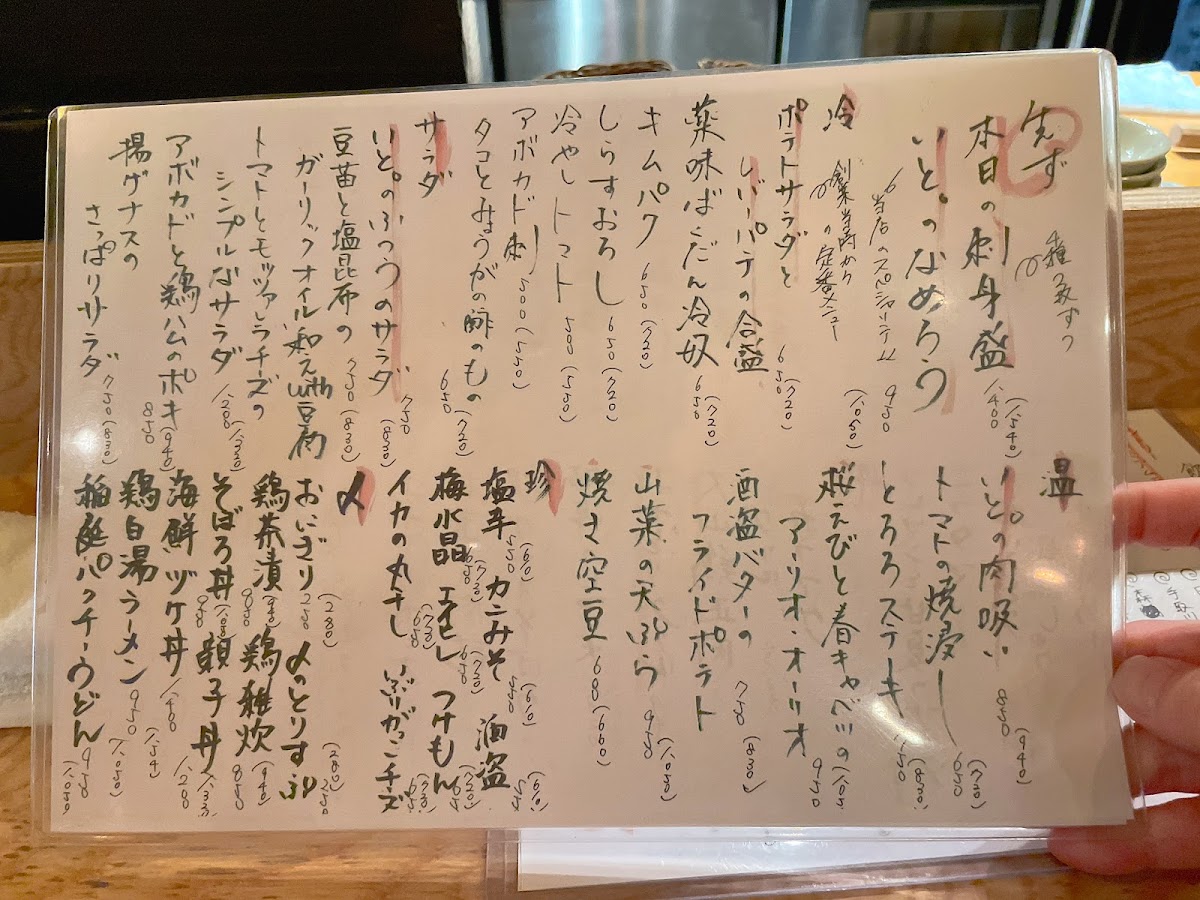 先ず
本日の刺身盛
1,400 (1,540)
いと。のなめろう
当店のスペシャリテ
950 (1,050)
冷
創業当時から
の定番メニュー
ポテトサラダと
しいパテの合盛
650 (720)
薬味ばくだん冷奴
650 (720)
キムパク 650 (720)
しらすおろし 650 (720)
冷やしトマト 500 (550)
アボカド刺 500 (550)
タコとみょうがの酢のもの
650 (720)
サラダ
いと。のふつうのサラダ
750 (830)
豆苗と塩昆布の
ガーリックオイル和えwith豆腐
750 (830)
トマトとモッツァレラチーズの
シンプルなサラダ
1,200 (1,320)
アボカドと鶏ハムのポキ
850 (940)
揚げナスの
さっぱりサラダ
750 (830)
温
いと。の肉吸い
850 (940)
トマトの焼浸し
650 (720)
とろろステーキ
750 (830)
桜えびと春キャベツの
アーリオ・オーリオ
950 (1,050)
酒盗バターの
フライドポテト
750 (830)
山菜の天ぷら
950 (1,050)
焼き空豆 680 (660)
珍
塩辛 550 (610) カニみそ 550 (610) 酒盗 (610)
梅水晶 650 (720) エイヒレ 650 (720) つけもん (720)
イカの丸干し 650 (720) いぶりがっこチーズ (720)
〆
おにぎり 250 (280) 〆のとりすぷ 250 (280)
鶏茶漬 850 (940) 鶏雑炊 850 (940)
そぼろ丼 950 親子丼 1,200
海鮮ヅケ丼 1,400 (1,540)
鶏白湯ラーメン 950 (1,050)
稲庭パッチーうどん 950 (1,050)